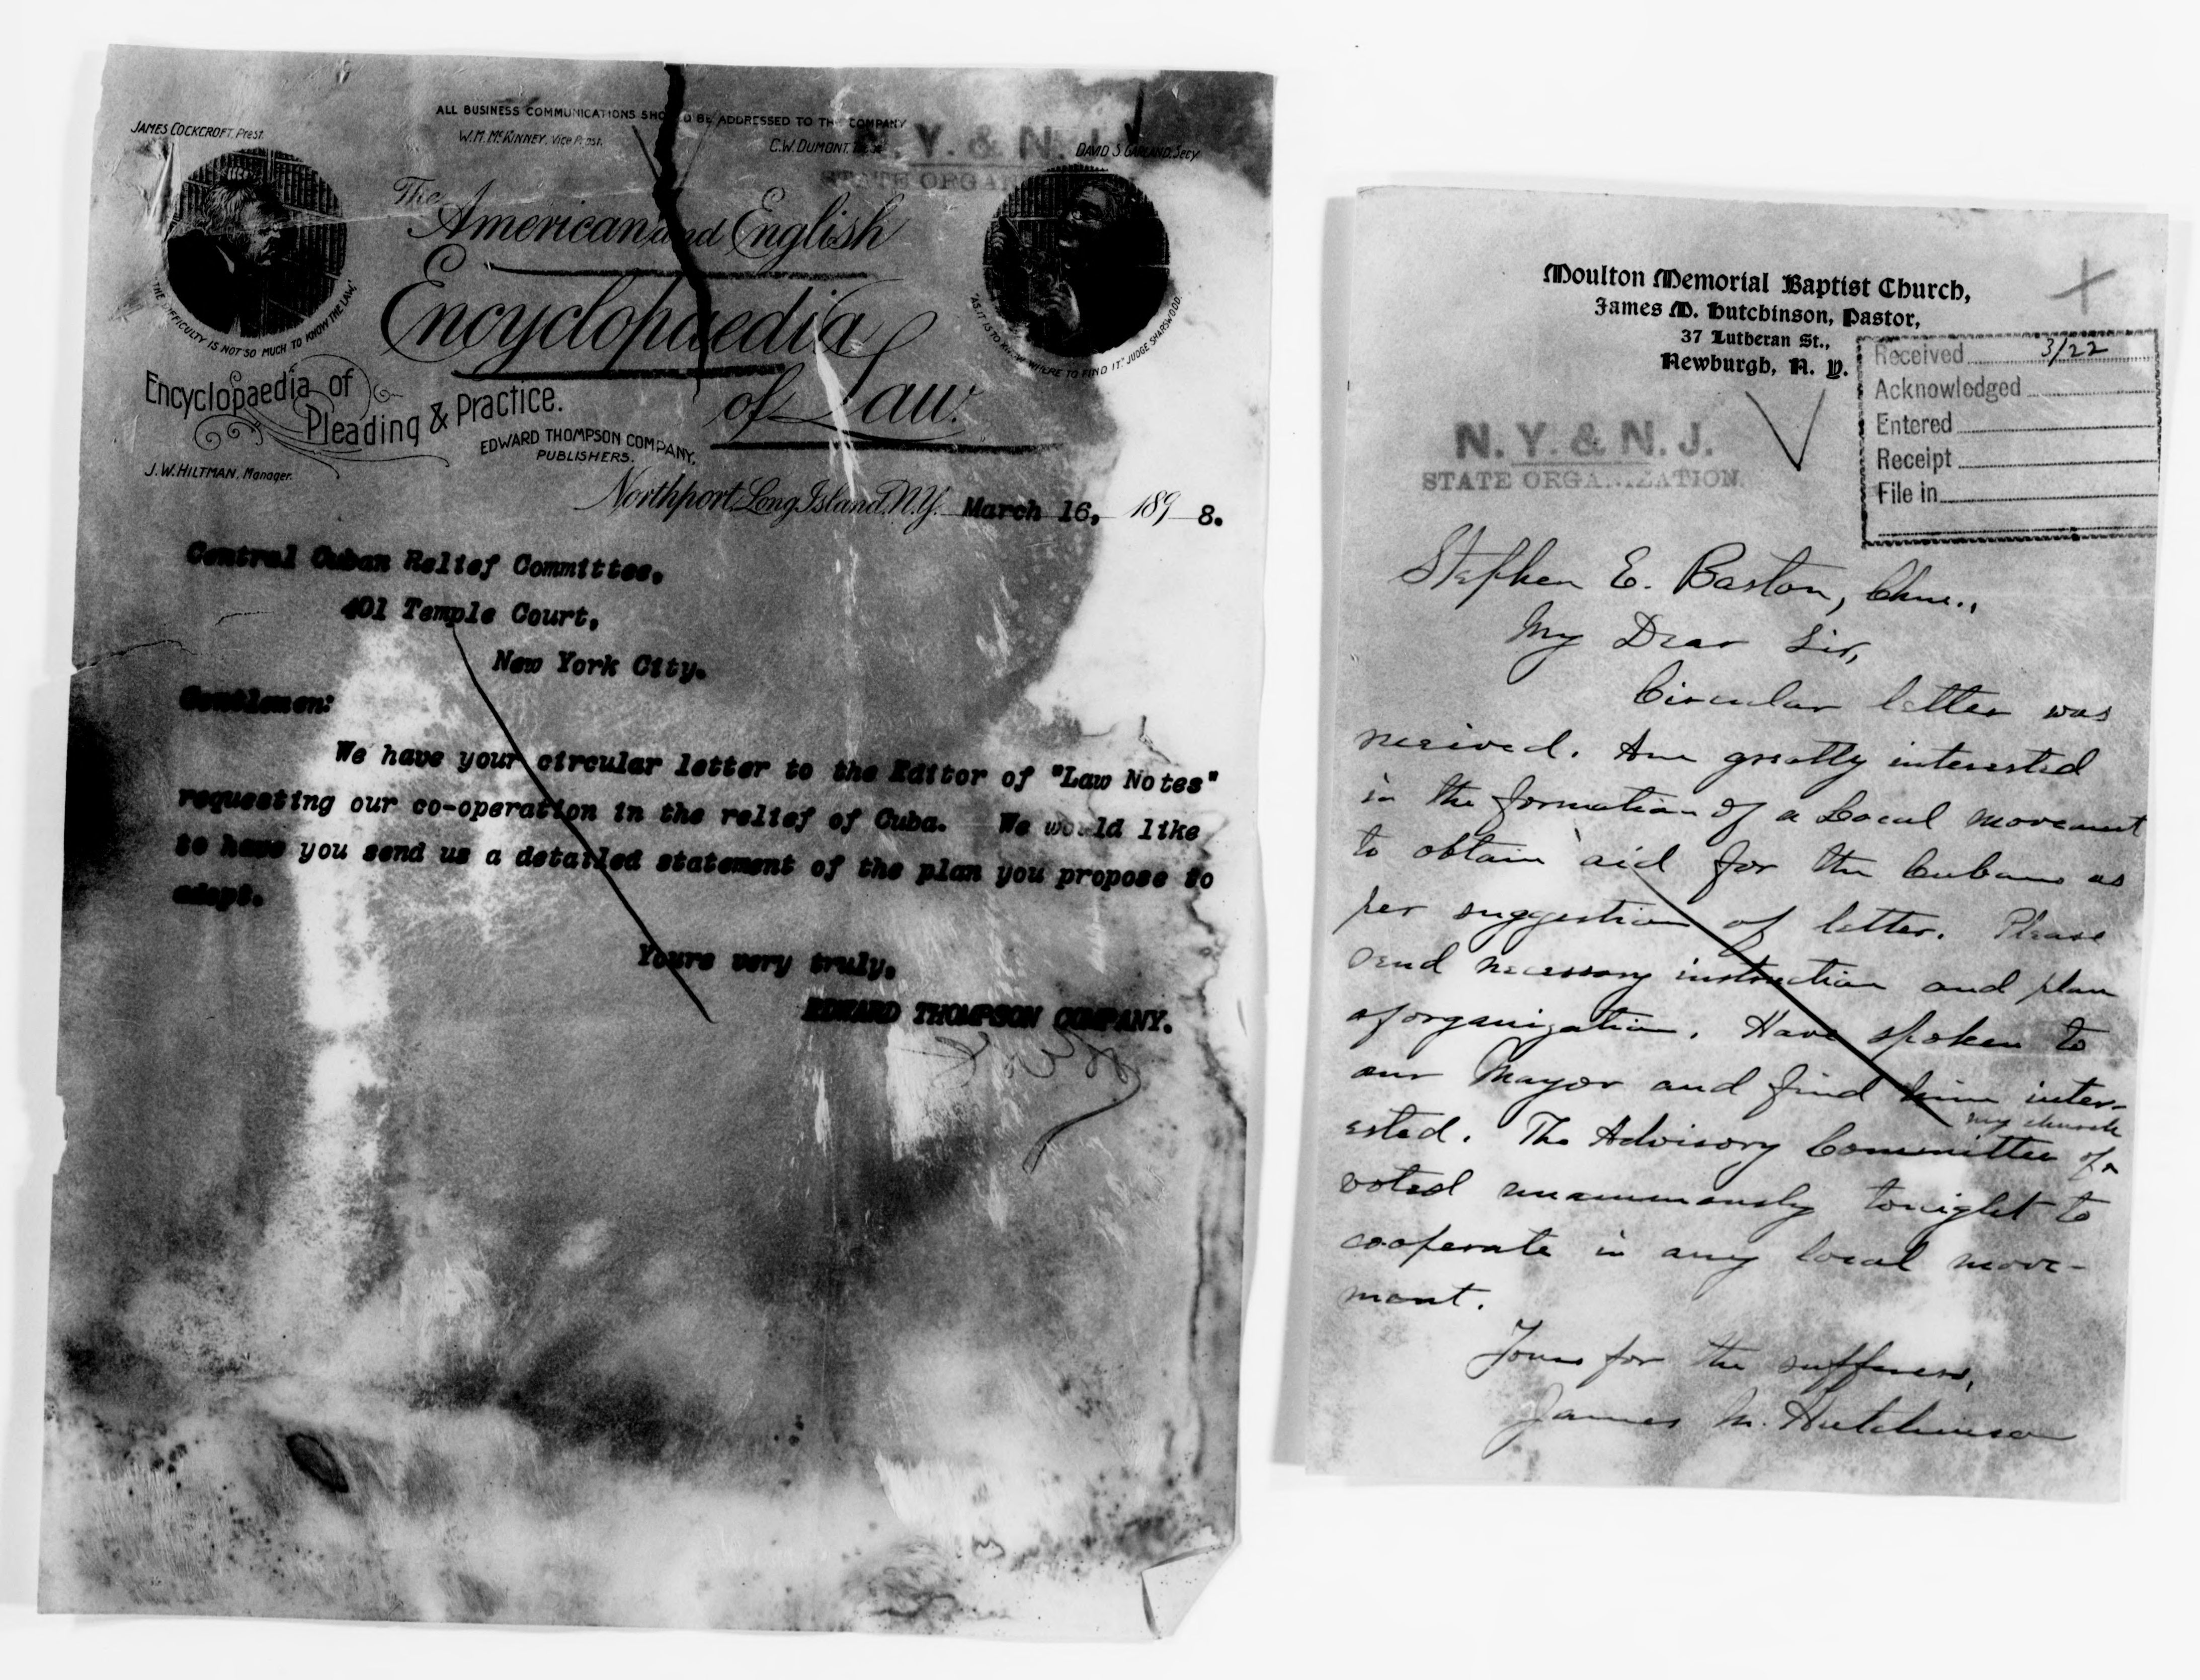 ALL BUSINESS COMMUNICATIONS SHO D BE ADDRESSED TO TH COMPANY
JAMES COCKCROFT, Prest.
W.M. McKINNEY, Vice Prest.
C.W. DUMONT,
DAVID S. GARLAND, Secy
Y. & N. J.
STATE ORGA
The
American and English
Encyclopaedia
of Law.
"THE DIFFICULTY IS NOT SO MUCH TO KNOW THE LAW,"
"AS IT IS TO KNOW WHERE TO FIND IT." JUDGE SHARSWOOD.
Encyclopaedia of
Pleading & Practice.
EDWARD THOMPSON COMPANY,
PUBLISHERS.
J. W. HILTMAN, Manager.
Northport, Long Island, N.Y. March 16, 189 8.
Central Cuban Relief Committee,
401 Temple Court,
New York City.
Gentlemen:
We have your circular letter to the Editor of "Law Notes"
requesting our co-operation in the relief of Cuba. We would like
to have you send us a detailed statement of the plan you propose to
adopt.
Yours very truly,
EDWARD THOMPSON COMPANY.
Moulton Memorial Baptist Church,
James M. Hutchinson, Pastor,
37 Lutheran St.,
Newburgh, N. Y.
Received 3/22
Acknowledged
Entered
Receipt
File in
N. Y. & N. J.
STATE ORGANIZATION.
Stephen E. Barton, Chm.,
My Dear Sir,
Circular letter was
received. Am greatly interested
in the formation of a Local movement
to obtain aid for the Cubans as
per suggestion of letter. Please
send necessary instruction and plan
of organization. Have spoken to
our Mayor and find him inter-
ested. The Advisory Committee of my church
voted unanimously tonight to
cooperate in any local move-
ment.
Yours for the sufferers,
James M. Hutchinson